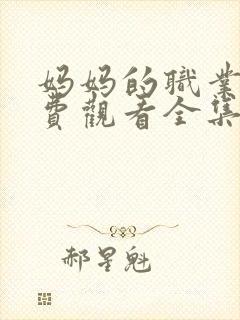 妈妈的職業
費觀看全集
郝星魁